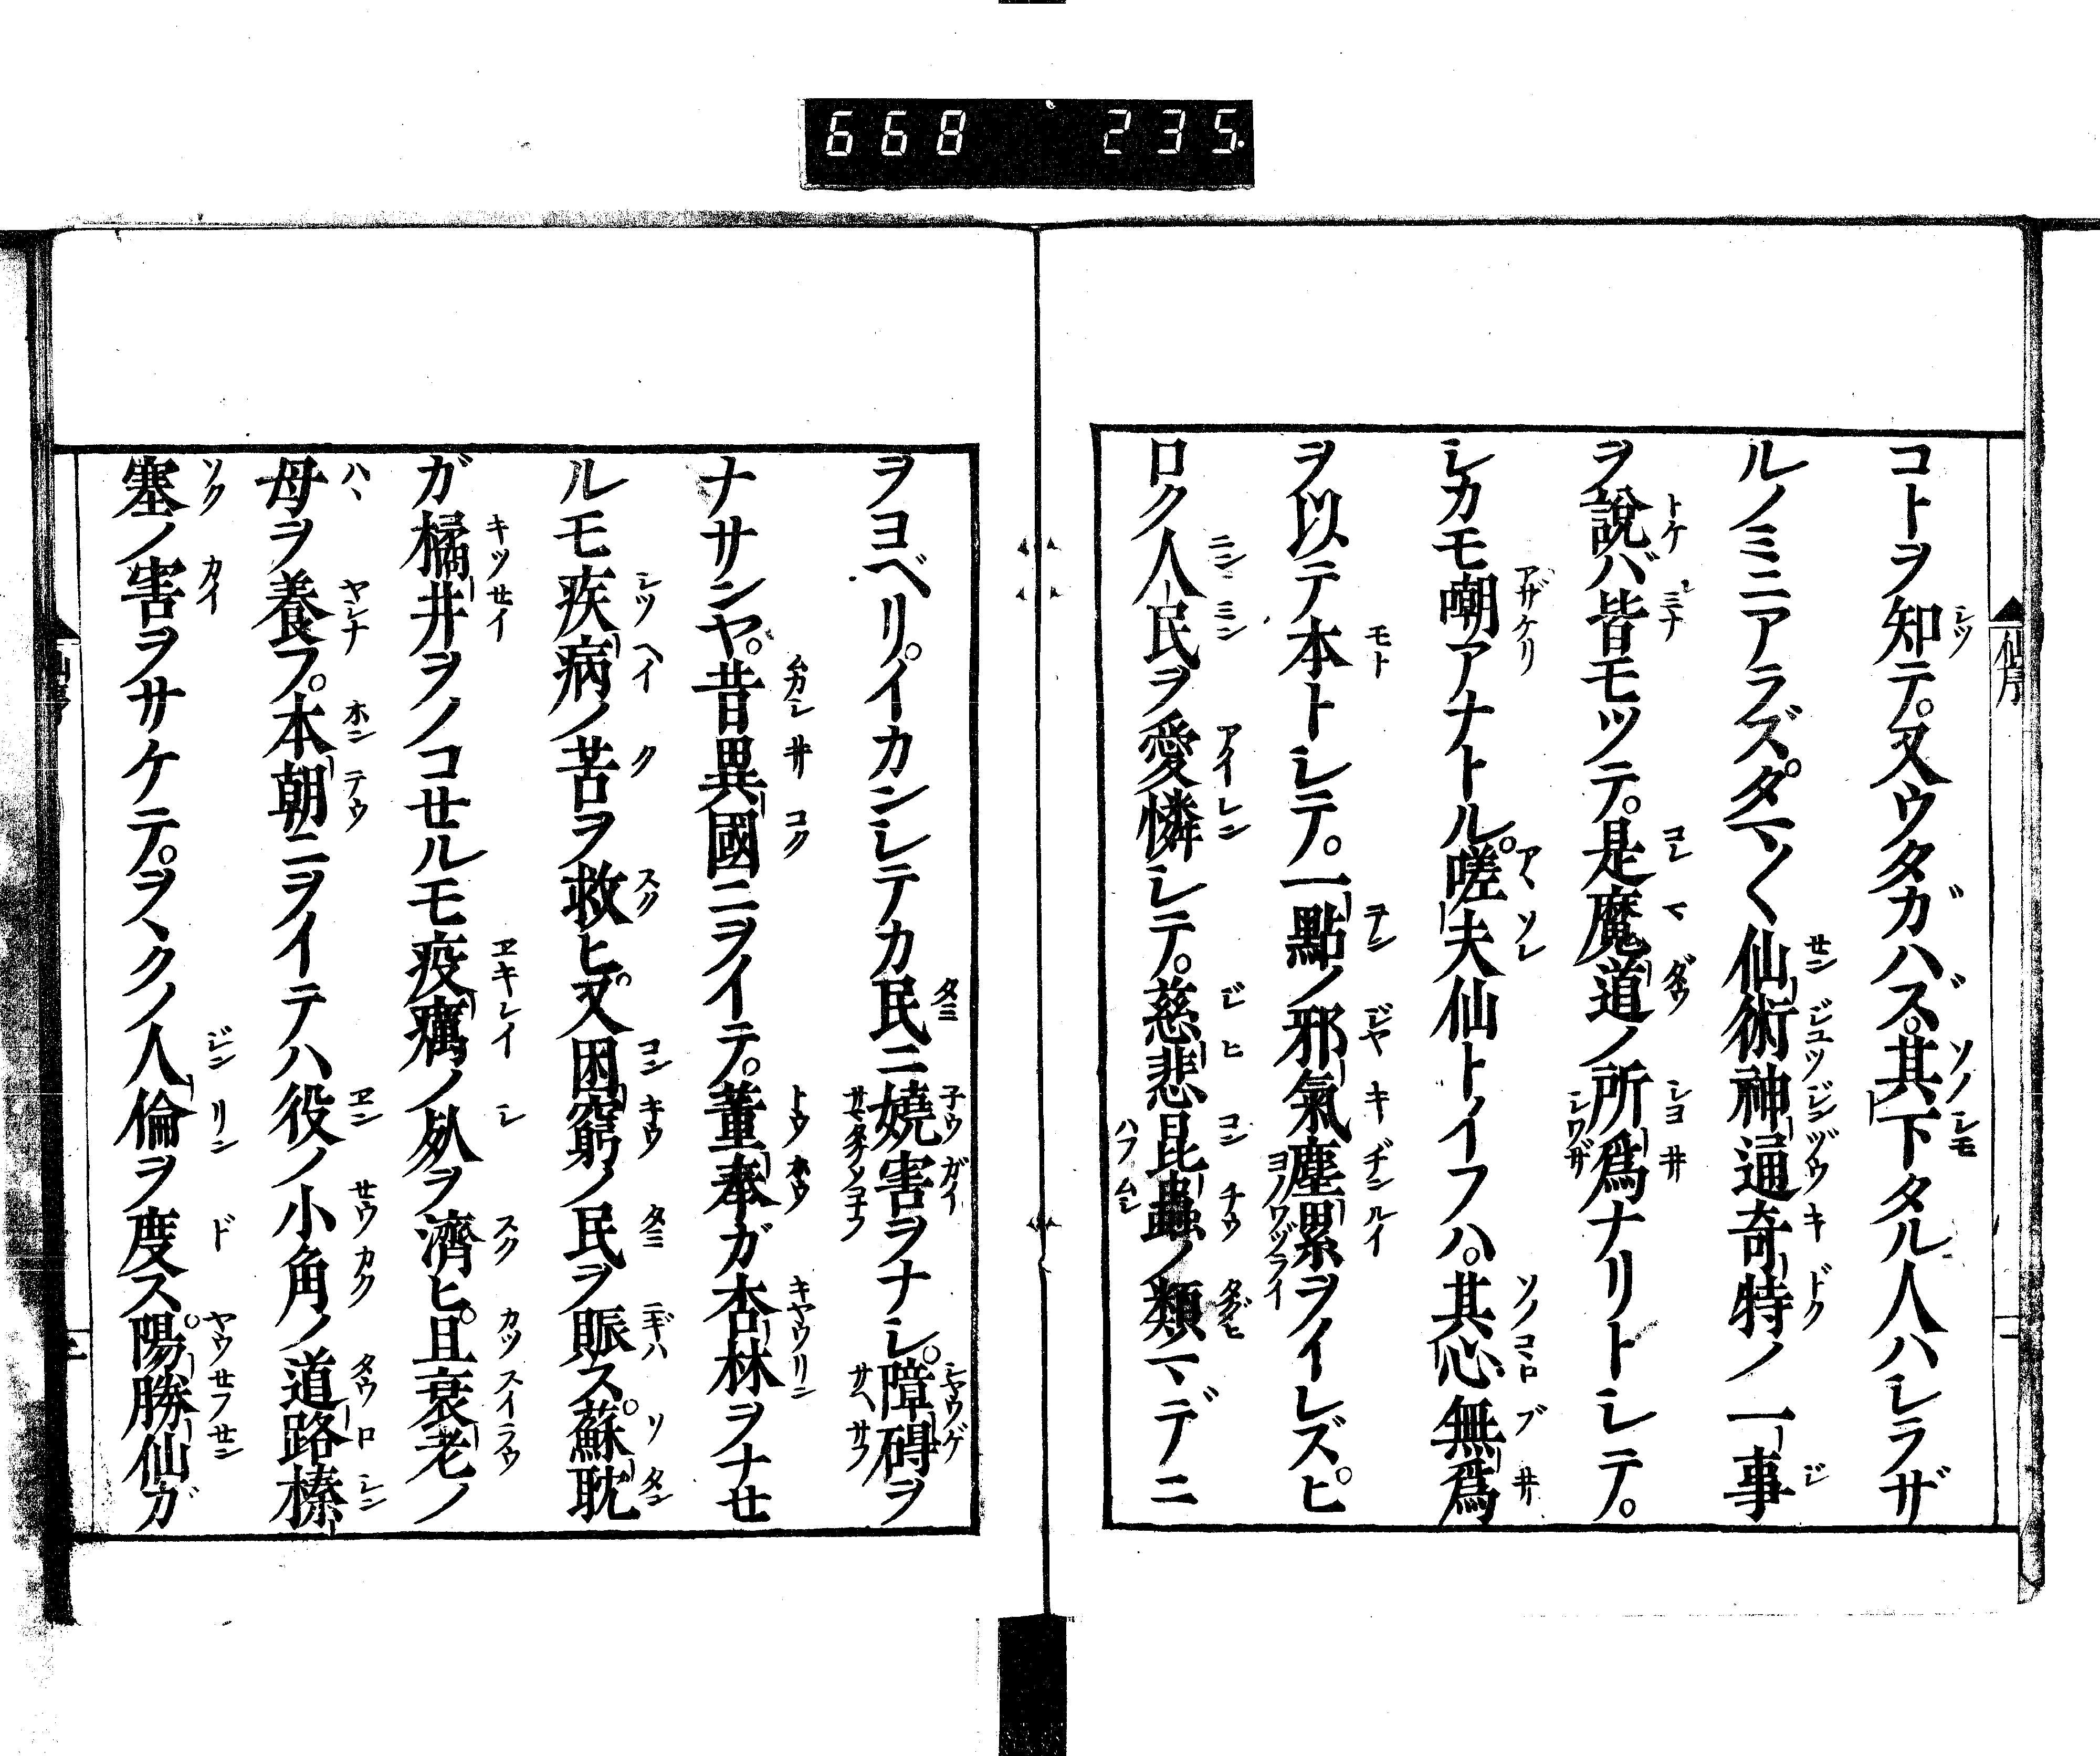 668 235.
仙序
コトヲ知テ。又ウタガハズ。其下タル人ハシラザ
ルノミニアラズ。タマ〱仙術神通奇特ノ一事
ヲ說バ皆モツテ。是魔道ノ所爲ナリトシテ。
シカモ嘲アナトル。嗟夫仙トイフハ。其心無爲
ヲ以テ本トシテ。一點ノ邪氣塵累ヲイレズ。ヒ
ロク人民ヲ愛憐シテ。慈悲昆蟲ノ類マデニ
ヲヨベリ。イカンシテカ民ニ嬈害ヲナシ。障碍ヲ
ナサンヤ。昔異國ニヲイテ。董奉ガ杏林ヲナセ
ルモ疾病ノ苦ヲ救ヒ。又困窮ノ民ヲ賑ス。蘇耽
ガ橘井ヲノコセルモ疫癘ノ死ヲ濟ヒ。且衰老ノ
母ヲ養フ。本朝ニヲイテハ役ノ小角ノ道路榛
塞ノ害ヲサケテ。ヲヽクノ人倫ヲ度ス。陽勝仙ガ